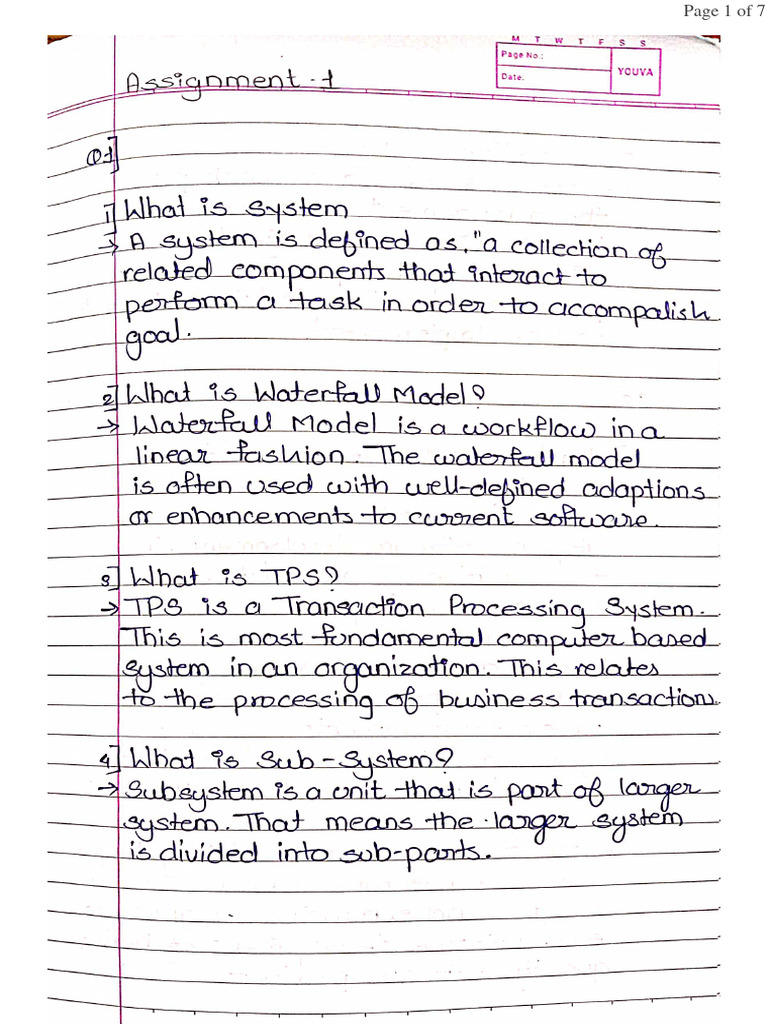 Page 1 of 7
M T W T F S S
Page No.:
Date:
YOUVA
Assignment-1
Q1]
1] What is system
→ A system is defined as, "a collection of
related components that interact to
perform a task in order to accompalish
goal.
2] What is Waterfall Model?
→ Waterfall Model is a workflow in a
linear fashion. The waterfall model
is often used with well-defined adaptions
or enhancements to current software.
3] What is TPS?
→ TPS is a Transaction Processing System.
This is most fundamental computer based
system in an organization. This relates
to the processing of business transactions.
4] What is Sub-System?
→ Subsystem is a unit that is part of larger
system. That means the larger system
is divided into sub-parts.